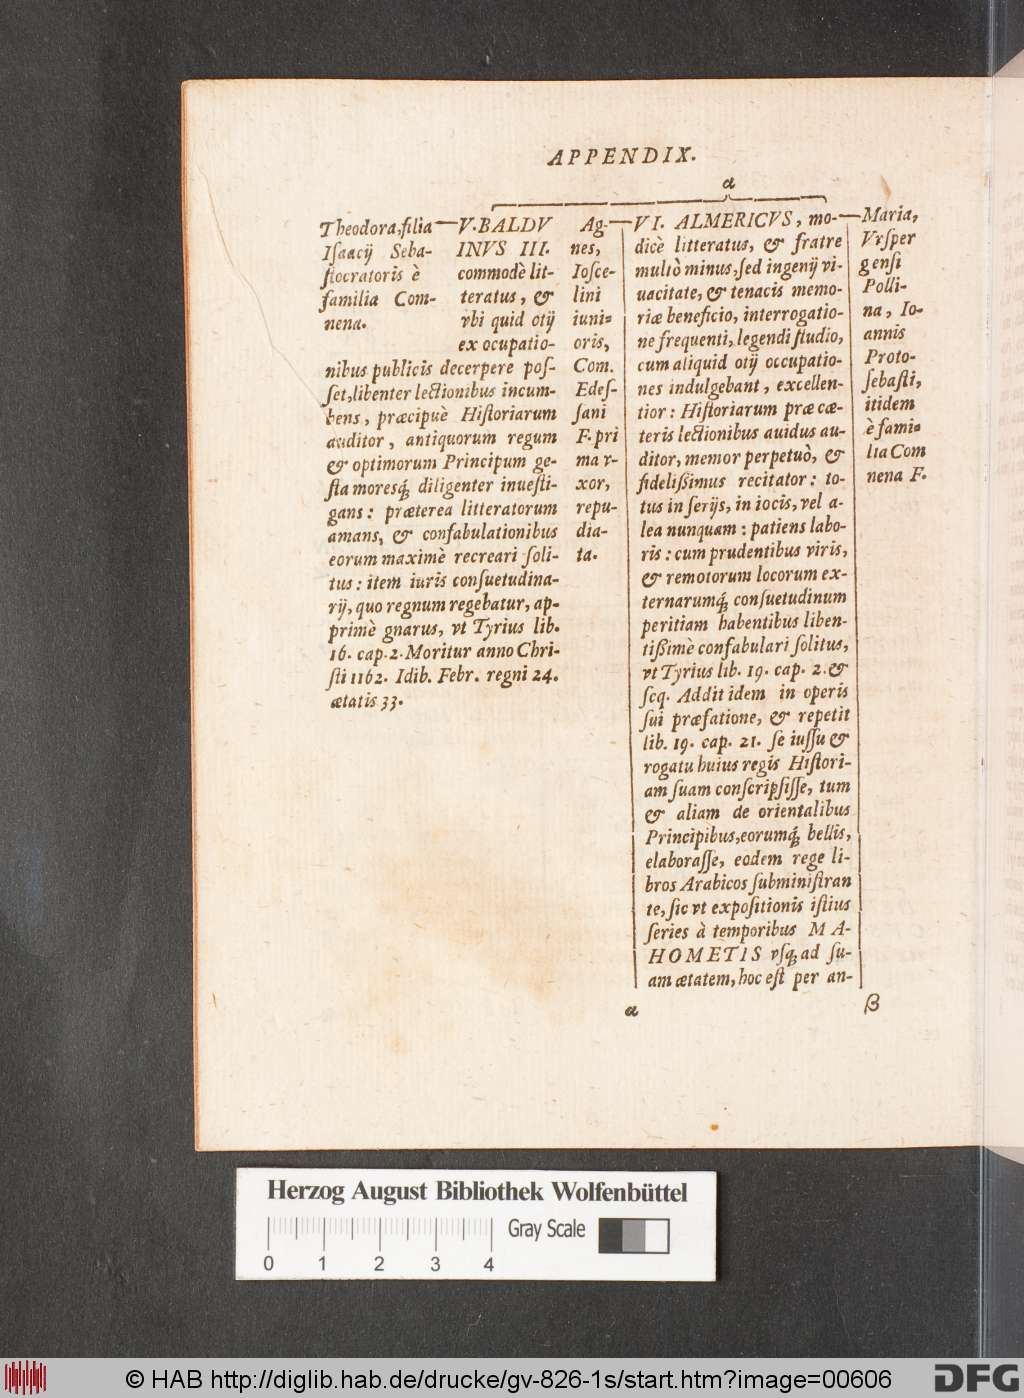 APPENDIX.
a
Theodora, filia
Isaacij Seba-
stocratoris è
familia Com-
nena.
V. BALDV
INVS III.
commodè lit-
teratus, &
vbi quid otij
ex ocupatio-
nibus publicis decerpere pos-
set, libenter lectionibus incum-
bens, præcipuè Historiarum
auditor, antiquorum regum
& optimorum Principum ge-
sta moresq́; diligenter inuesti-
gans: præterea litteratorum
amans, & confabulationibus
eorum maximè recreari soli-
tus: item iuris consuetudina-
rij, quo regnum regebatur, ap-
primè gnarus, vt Tyrius lib.
16. cap. 2. Moritur anno Chri-
sti 1162. Idib. Febr. regni 24.
ætatis 33.
Ag-
nes,
Iosce-
lini
iuni=
oris,
Com.
Edes-
sani
F. pri
ma v-
xor,
repu-
dia-
ta.
VI. ALMERICVS, mo-
dicè litteratus, & fratre
multò minus, sed ingenij vi-
uacitate, & tenacis memo-
riæ beneficio, interrogatio-
ne frequenti, legendi studio,
cum aliquid otij occupatio-
nes indulgebant, excellen-
tior: Historiarum præ cæ-
teris lectionibus auidus au-
ditor, memor perpetuò, &
fidelißimus recitator: to-
tus in serijs, in iocis, vel a-
lea nunquam: patiens labo-
ris: cum prudentibus viris,
& remotorum locorum ex-
ternarumq́; consuetudinum
peritiam habentibus liben-
tißimè confabulari solitus,
vt Tyrius lib. 19. cap. 2. &
seq. Addit idem in operis
sui præfatione, & repetit
lib. 19. cap. 21. se iussu &
rogatu huius regis Histori-
am suam conscripsisse, tum
& aliam de orientalibus
Principibus, eorumq́; bellis,
elaborasse, eodem rege li-
bros Arabicos subministran
te, sic vt expositionis istius
series à temporibus MA-
HOMETIS vsq; ad su-
am ætatem, hoc est per an-
Maria,
Vrsper
gensi
Polli-
na, Io-
annis
Proto-
sebasti,
itidem
è fami=
lia Com
nena F.
a
β
Herzog August Bibliothek Wolfenbüttel
Gray Scale
0 1 2 3 4
© HAB http://diglib.hab.de/drucke/gv-826-1s/start.htm?image=00606
DFG